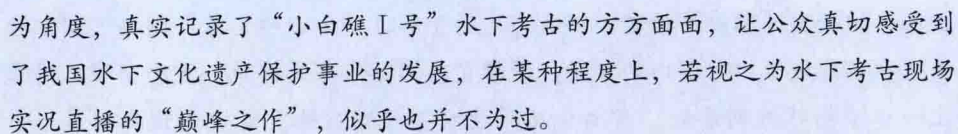 为角度，真实记录了“小白礁Ⅰ号”水下考古的方方面面，让公众真切感受到
了我国水下文化遗产保护事业的发展，在某种程度上，若视之为水下考古现场
实况直播的“巅峰之作”，似乎也并不为过。